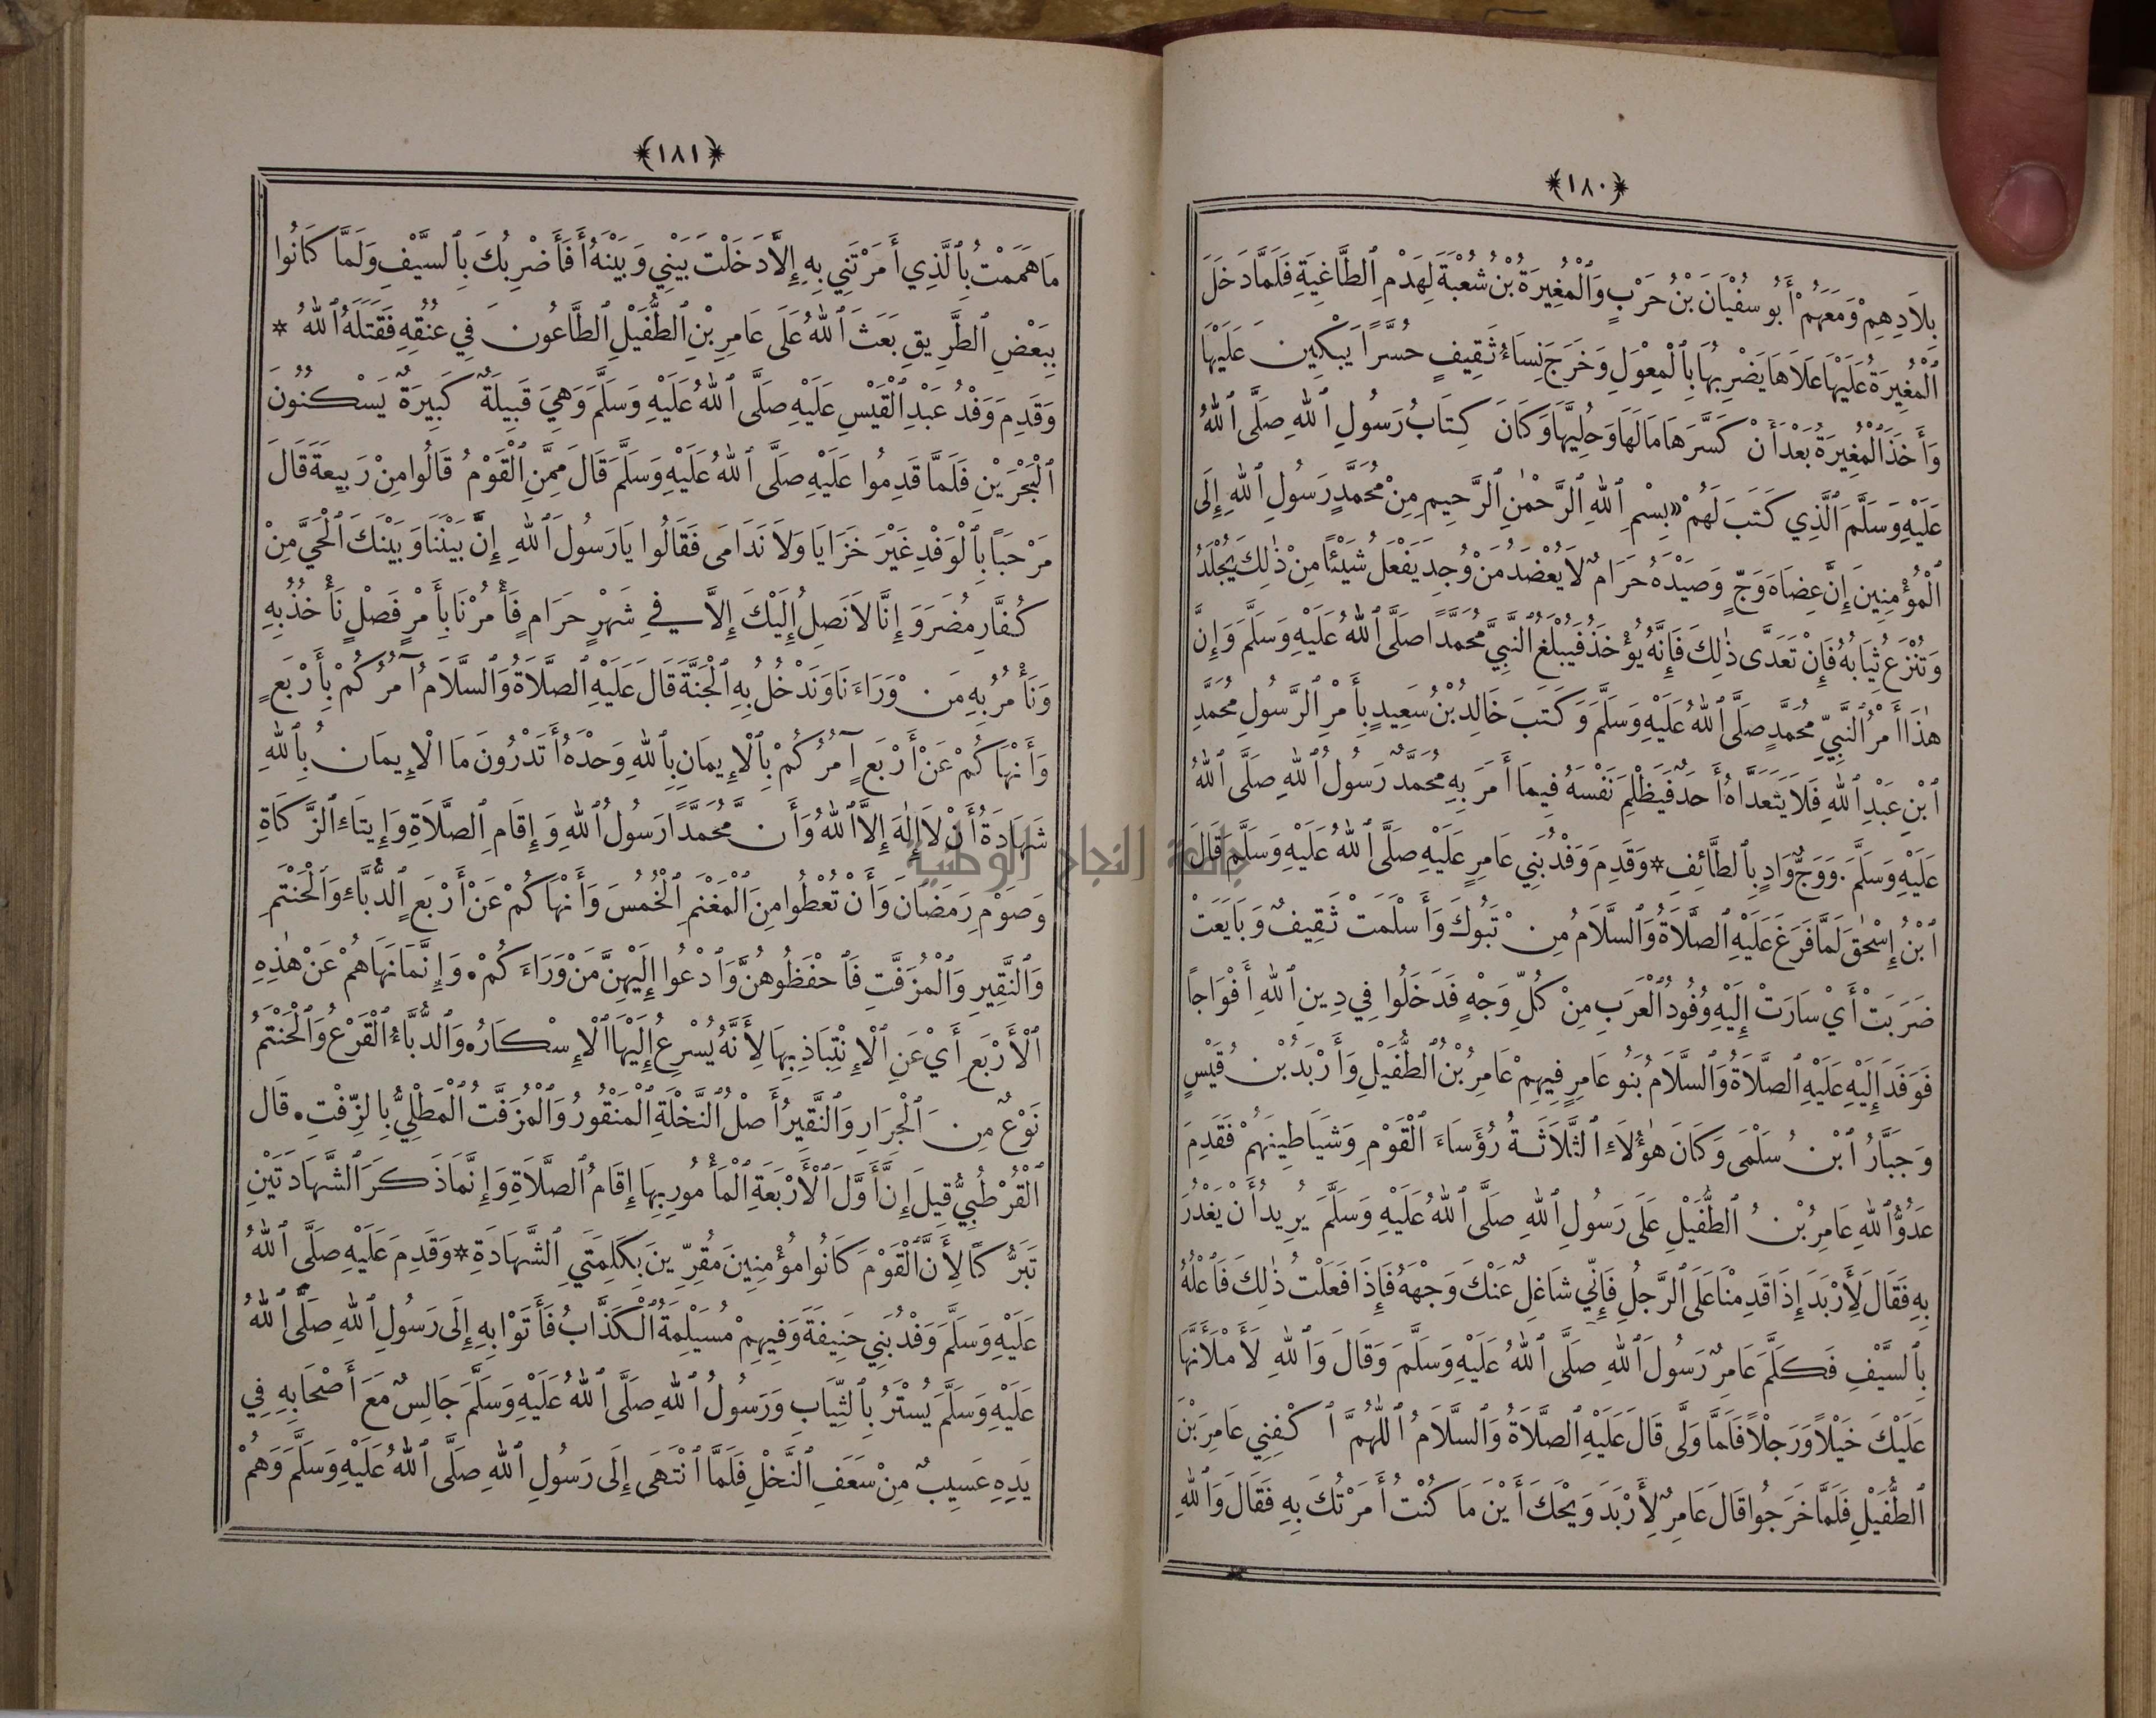 ﴿١٨٠﴾
بِلاَدِهِمْ وَمَعَهُمْ أَبُو سُفْيَانَ بْنُ حَرْبٍ وَٱلْمُغِيرَةُ بْنُ شُعْبَةَ لِهَدْمِ ٱلطَّاغِيَةِ فَلَمَّا دَخَلَ
ٱلْمُغِيرَةُ عَلَيْهَا عَلاَهَا يَضْرِبُهَا بِٱلْمِعْوَلِ وَخَرَجَ نِسَاءُ ثَقِيفٍ حُسَّرًا يَبْكِينَ عَلَيْهَا
وَأَخَذَ ٱلْمُغِيرَةُ بَعْدَ أَنْ كَسَّرَهَا مَا لَهَا وَحُلِيَّهَا وَكَانَ كِتَابُ رَسُولِ ٱللهِ صَلَّى ٱللهُ
عَلَيْهِ وَسَلَّمَ ٱلَّذِي كَتَبَ لَهُمْ «بِسْمِ ٱللهِ ٱلرَّحْمٰنِ ٱلرَّحِيمِ مِنْ مُحَمَّدٍ رَسُولِ ٱللهِ إِلَى
ٱلْمُؤْمِنِينَ إِنَّ عِضَاهَ وَجٍّ وَصَيْدَهُ حَرَامٌ لاَ يُعْضَدُ مَنْ وُجِدَ يَفْعَلُ شَيْئًا مِنْ ذٰلِكَ يُجْلَدُ
وَتُنْزَعُ ثِيَابُهُ فَإِنْ تَعَدَّى ذٰلِكَ فَإِنَّهُ يُؤْخَذُ فَيُبْلَغُ ٱلنَّبِيَّ مُحَمَّدًا صَلَّى ٱللهُ عَلَيْهِ وَسَلَّمَ وَإِنَّ
هٰذَا أَمْرُ ٱلنَّبِيِّ مُحَمَّدٍ صَلَّى ٱللهُ عَلَيْهِ وَسَلَّمَ وَكَتَبَ خَالِدُ بْنُ سَعِيدٍ بِأَمْرِ ٱلرَّسُولِ مُحَمَّدِ
ٱبْنِ عَبْدِ ٱللهِ فَلاَ يَتَعَدَّاهُ أَحَدٌ فَيَظْلِمَ نَفْسَهُ فِيمَا أَمَرَ بِهِ مُحَمَّدٌ رَسُولُ ٱللهِ صَلَّى ٱللهُ
عَلَيْهِ وَسَلَّمَ. وَوَجٌّ وَادٍ بِٱلطَّائِفِ * وَقَدِمَ وَفْدُ بَنِي عَامِرٍ عَلَيْهِ صَلَّى ٱللهُ عَلَيْهِ وَسَلَّمَ قَالَ
ٱبْنُ إِسْحٰقَ لَمَّا فَرَغَ عَلَيْهِ ٱلصَّلاَةُ وَٱلسَّلاَمُ مِنْ تَبُوكَ وَأَسْلَمَتْ ثَقِيفٌ وَبَايَعَتْ
ضَرَبَتْ أَيْ سَارَتْ إِلَيْهِ وُفُودُ ٱلْعَرَبِ مِنْ كُلِّ وَجْهٍ فَدَخَلُوا فِي دِينِ ٱللهِ أَفْوَاجًا
فَوَفَدَ إِلَيْهِ عَلَيْهِ ٱلصَّلاَةُ وَٱلسَّلاَمُ بَنُو عَامِرٍ فِيهِمْ عَامِرُ بْنُ ٱلطُّفَيْلِ وَأَرْبَدُ بْنُ قَيْسٍ
وَجَبَّارُ ٱبْنُ سُلْمَى وَكَانَ هٰؤُلاَءِ ٱلثَّلاَثَةُ رُؤَسَاءَ ٱلْقَوْمِ وَشَيَاطِينَهُمْ فَقَدِمَ
عَدُوُّ ٱللهِ عَامِرُ بْنُ ٱلطُّفَيْلِ عَلَى رَسُولِ ٱللهِ صَلَّى ٱللهُ عَلَيْهِ وَسَلَّمَ يُرِيدُ أَنْ يَغْدُرَ
بِهِ فَقَالَ لِأَرْبَدَ إِذَا قَدِمْنَا عَلَى ٱلرَّجُلِ فَإِنِّي شَاغِلٌ عَنْكَ وَجْهَهُ فَإِذَا فَعَلْتُ ذٰلِكَ فَٱعْلُهُ
بِٱلسَّيْفِ فَكَلَّمَ عَامِرٌ رَسُولَ ٱللهِ صَلَّى ٱللهُ عَلَيْهِ وَسَلَّمَ وَقَالَ وَٱللهِ لَأَمْلَأَنَّهَا
عَلَيْكَ خَيْلاً وَرَجْلاً فَلَمَّا وَلَّى قَالَ عَلَيْهِ ٱلصَّلاَةُ وَٱلسَّلاَمُ ٱللّٰهُمَّ ٱكْفِنِي عَامِرَ بْنَ
ٱلطُّفَيْلِ فَلَمَّا خَرَجُوا قَالَ عَامِرٌ لِأَرْبَدَ وَيْحَكَ أَيْنَ مَا كُنْتُ أَمَرْتُكَ بِهِ فَقَالَ وَٱللهِ
﴿١٨١﴾
مَا هَمَمْتُ بِٱلَّذِي أَمَرْتَنِي بِهِ إِلاَّ دَخَلْتَ بَيْنِي وَبَيْنَهُ أَفَأَضْرِبُكَ بِٱلسَّيْفِ وَلَمَّا كَانُوا
بِبَعْضِ ٱلطَّرِيقِ بَعَثَ ٱللهُ عَلَى عَامِرِ بْنِ ٱلطُّفَيْلِ ٱلطَّاعُونَ فِي عُنُقِهِ فَقَتَلَهُ ٱللهُ *
وَقَدِمَ وَفْدُ عَبْدِ ٱلْقَيْسِ عَلَيْهِ صَلَّى ٱللهُ عَلَيْهِ وَسَلَّمَ وَهِيَ قَبِيلَةٌ كَبِيرَةٌ يَسْكُنُونَ
ٱلْبَحْرَيْنِ فَلَمَّا قَدِمُوا عَلَيْهِ صَلَّى ٱللهُ عَلَيْهِ وَسَلَّمَ قَالَ مِمَّنِ ٱلْقَوْمُ قَالُوا مِنْ رَبِيعَةَ قَالَ
مَرْحَبًا بِٱلْوَفْدِ غَيْرَ خَزَايَا وَلاَ نَدَامَى فَقَالُوا يَا رَسُولَ ٱللهِ إِنَّ بَيْنَنَا وَبَيْنَكَ ٱلْحَيَّ مِنْ
كُفَّارِ مُضَرَ وَإِنَّا لاَ نَصِلُ إِلَيْكَ إِلاَّ فِي شَهْرٍ حَرَامٍ فَأْمُرْنَا بِأَمْرٍ فَصْلٍ نَأْخُذُ بِهِ
وَنَأْمُرُ بِهِ مَنْ وَرَاءَنَا وَنَدْخُلُ بِهِ ٱلْجَنَّةَ قَالَ عَلَيْهِ ٱلصَّلاَةُ وَٱلسَّلاَمُ آمُرُكُمْ بِأَرْبَعٍ
وَأَنْهَاكُمْ عَنْ أَرْبَعٍ آمُرُكُمْ بِٱلْإِيمَانِ بِٱللهِ وَحْدَهُ أَتَدْرُونَ مَا ٱلْإِيمَانُ بِٱللهِ
شَهَادَةُ أَنْ لاَ إِلٰهَ إِلاَّ ٱللهُ وَأَنَّ مُحَمَّدًا رَسُولُ ٱللهِ وَإِقَامِ ٱلصَّلاَةِ وَإِيتَاءِ ٱلزَّكَاةِ
وَصَوْمِ رَمَضَانَ وَأَنْ تُعْطُوا مِنَ ٱلْمَغْنَمِ ٱلْخُمُسَ وَأَنْهَاكُمْ عَنْ أَرْبَعٍ ٱلدُّبَّاءِ وَٱلْحَنْتَمِ
وَٱلنَّقِيرِ وَٱلْمُزَفَّتِ فَٱحْفَظُوهُنَّ وَٱدْعُوا إِلَيْهِنَّ مَنْ وَرَاءَكُمْ. وَإِنَّمَا نَهَاهُمْ عَنْ هٰذِهِ
ٱلْأَرْبَعِ أَيْ عَنِ ٱلْإِنْتِبَاذِ بِهَا لِأَنَّهُ يُسْرِعُ إِلَيْهَا ٱلْإِسْكَارُ. وَٱلدُّبَّاءُ ٱلْقَرْعُ وَٱلْحَنْتَمُ
نَوْعٌ مِنَ ٱلْجِرَارِ وَٱلنَّقِيرُ أَصْلُ ٱلنَّخْلَةِ ٱلْمَنْقُورُ وَٱلْمُزَفَّتُ ٱلْمَطْلِيُّ بِٱلزِّفْتِ. قَالَ
ٱلْقُرْطُبِيُّ قِيلَ إِنَّ أَوَّلَ ٱلْأَرْبَعَةِ ٱلْمَأْمُورِ بِهَا إِقَامُ ٱلصَّلاَةِ وَإِنَّمَا ذَكَرَ ٱلشَّهَادَتَيْنِ
تَبَرُّكًا لِأَنَّ ٱلْقَوْمَ كَانُوا مُؤْمِنِينَ مُقِرِّينَ بِكَلِمَتَيِ ٱلشَّهَادَةِ * وَقَدِمَ عَلَيْهِ صَلَّى ٱللهُ
عَلَيْهِ وَسَلَّمَ وَفْدُ بَنِي حَنِيفَةَ وَفِيهِمْ مُسَيْلِمَةُ ٱلْكَذَّابُ فَأَتَوْا بِهِ إِلَى رَسُولِ ٱللهِ صَلَّى ٱللهُ
عَلَيْهِ وَسَلَّمَ يُسْتَرُ بِٱلثِّيَابِ وَرَسُولُ ٱللهِ صَلَّى ٱللهُ عَلَيْهِ وَسَلَّمَ جَالِسٌ مَعَ أَصْحَابِهِ فِي
يَدِهِ عَسِيبٌ مِنْ سَعَفِ ٱلنَّخْلِ فَلَمَّا ٱنْتَهَى إِلَى رَسُولِ ٱللهِ صَلَّى ٱللهُ عَلَيْهِ وَسَلَّمَ وَهُمْ
جامعة النجاح الوطنية